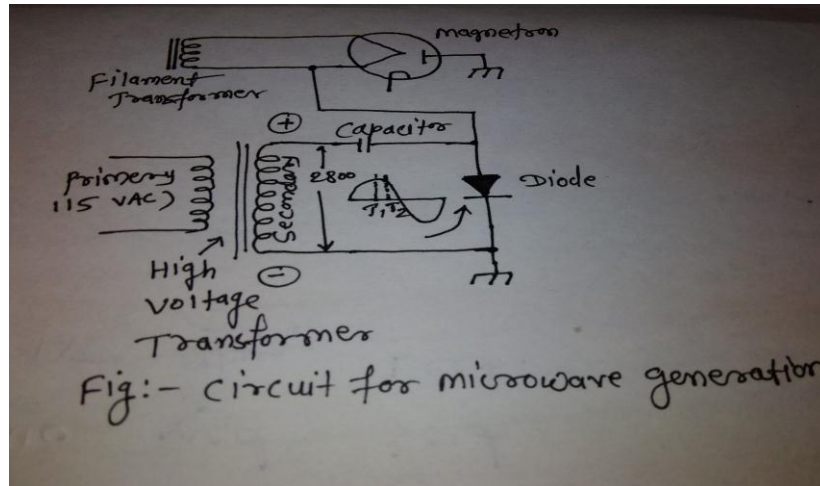 magnetron
Filament
Transformer
+
Capacitor
Primery
115 VAC)
Secondary
2800
T1 T2
Diode
-
High
Voltage
Transformer
Fig:- Circuit for microwave generation